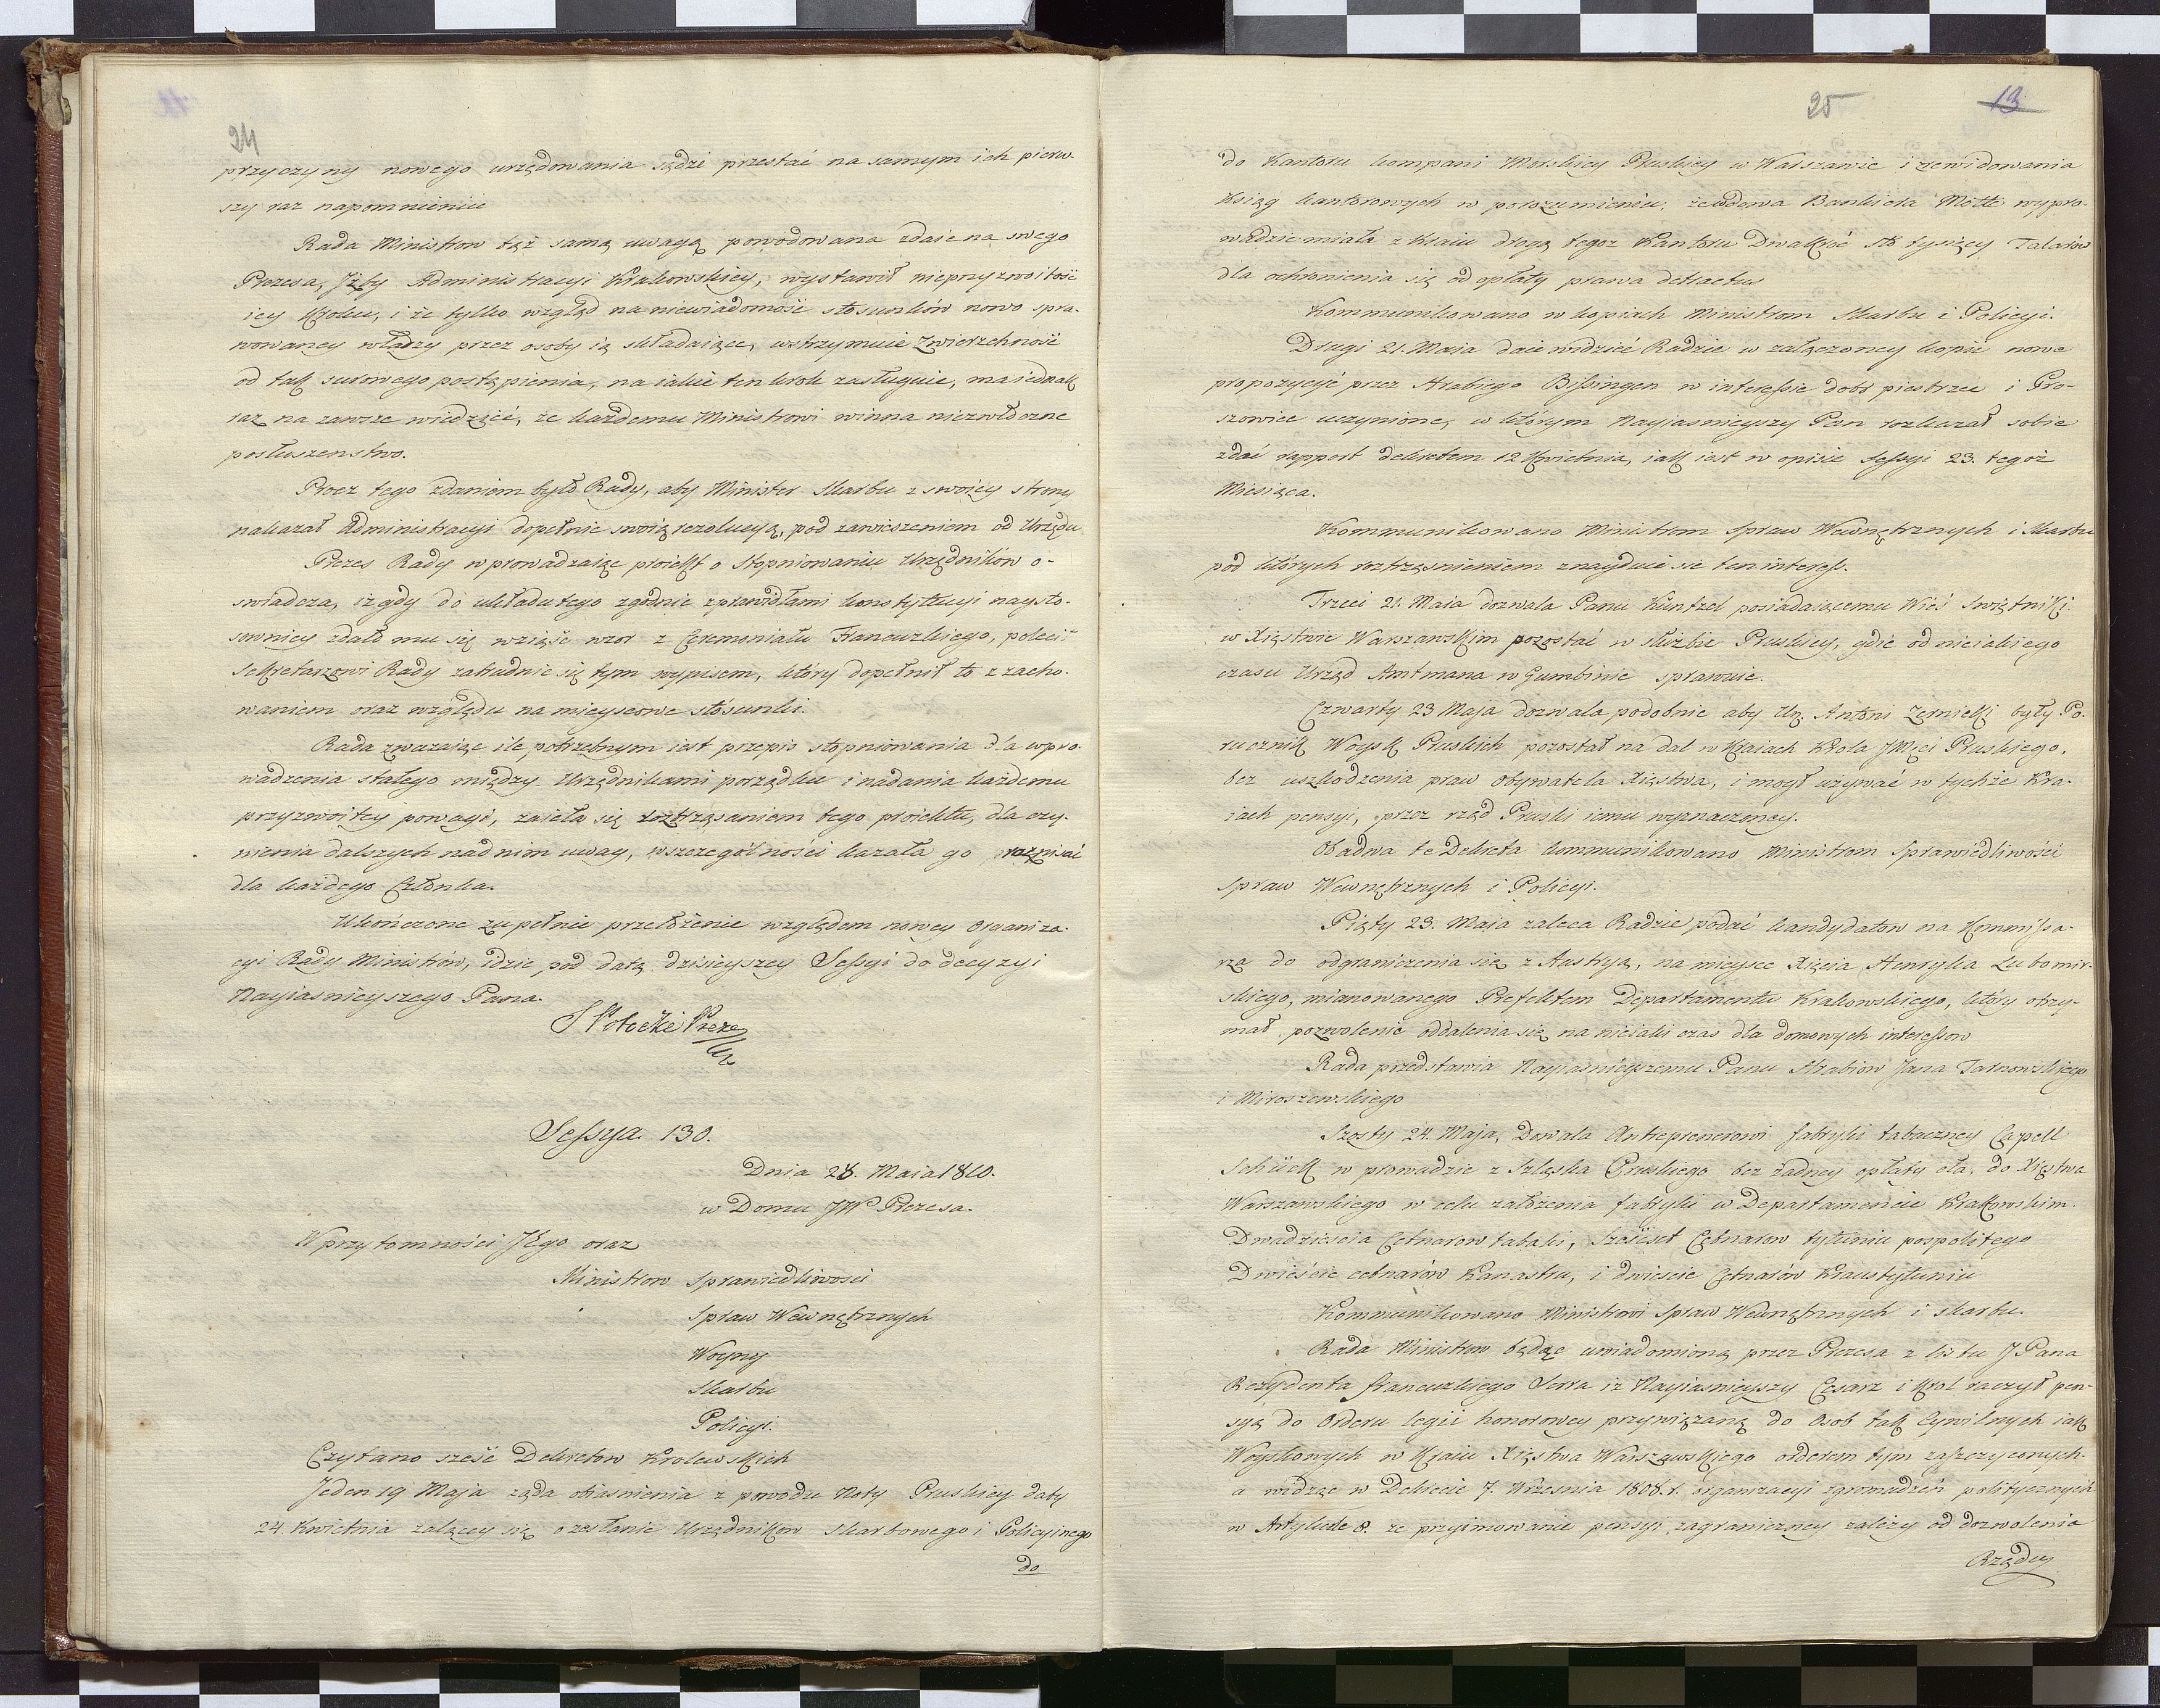 24
przyczyny nowego urzędowania sądzi przestać na samym ich pierw-
szy raz napomnieniu
Rada Ministrow tąż samą uwagą powodowana zdaie na swego
Prezesa, Jżby Administracyi Krakowskiey, wystawił nieprzyzwoitość
iey kroku, i że tylko wzgląd na niewiadomość stosunków nowo spra-
wowaney władzy przez osoby ią składaiące, wstrzymuie Zwierzchność
od tak surowego postąpienia, na iakie ten krok zasługuie, ma iednak
raz na zawsze wiedzieć, że każdemu Ministrowi winna niezwłoczne
posłuszenstwo.
Procz tego zdaniem było Rady, aby Minister Skarbu z swoiey strony
nakazał Administracyi dopełnic swoią rezolucyą, pod zawieszeniem od Urzędu
Prezes Rady wprowadzaiąc proiekt o stopniowaniu Urzędników o-
swiadcza, iż gdy do układu tego zgodnie z prawidłami konstytucyi naysto-
sowniey zdało mu się wziąść wzor z Ceremoniału Francuzkiego, polecił
Sekretarzowi Rady zatrudnic się tym wypisem, który dopełnił to z zacho-
waniem oraz względu na mieyscowe stósunki.
Rada zważaiąc ile potrzebnym iest przepis stopniowania dla wpro-
wadzenia stałego między Urzędnikami porządku i nadania każdemu
przyzwoitey powagi, zaięła się roztrząsaniem tego proiektu, dla czy-
nienia dalszych nad nim uwag, wszczególności kazała go rozpisać
dla każdego Członka.
Ukończone zupełnie przełożenie względem nowey organiza-
cyi Rady Ministrów, idzie pod datą dzisieyszey Sessyi do decyzyi
Nayiasnieyszego Pana.
S Potocki Prezes
Sessya. 130.
Dnia 28. Maia 1810.
w Domu JW Prezesa.
W przytomności JEgo oraz
Ministrow Sprawiedliwosci
Spraw Wewnętrznych
Woyny
Skarbu
Policyi.
Czytano sześć Dekretow Krolewskich
Jeden 19 Maja ząda obiasnienia z powodu Noty Pruskiey daty
24. Kwietnia zalącey się o zesłanie Urzędnikow Skarbowego i Policyinego
do
25 13
do Kantoru kompani Morskiey Pruskiey w Warszawie i zrewidowania
Ksiąg kantorowych w porozumieniu, że wdowa Bankiera Motte wypro-
wadzic miała z Kraiu drogą tegoż Kantoru Dwakroć sto tysięcy Talarów
dla ochronienia się od opłaty prawa detractus
Kommunikowano w kopiach Ministrom Skarbu i Policyi.
Drugi 21. Maja daie widzieć Radzie w załączoney kopii nowe
propozycye przez Hrabiego Bissingen w interessie dobr piestrzec i Pro-
szowice uczynione, w którym Nayiasnieyszy Pan rozkazał sobie
zdać rapport dekretem 12 Kwietnia, iak iest w opisie Sessyi 23. tegoż
Miesiąca.
Kommunikowano Ministrom Spraw Wewnętrznych i Skarbu
pod których roztrząsnieniem znayduie sie ten interess.
Trzeci 21. Maia dozwala Panu Kuntzel posiadaiącemu Wieś Swiętniki
w Xięstwie Warszawskim pozostać w służbie Pruskiey, gdie od nieiakiego
czasu Urząd Amtmana w Gumbinie sprawuie.
Czwarty 23 Maja dozwala podobnie aby Ur. Antoni Zernicki były Po-
rucznik Woysk Pruskich pozostał na dal w Kraiach Krola JMści Pruskiego,
bez uszkodzenia praw Obywatela Xięstwa, i mogł używać w tychże Kra-
iach pensyi, przez rząd Pruski iemu wyznaczoney.
Obadwa te Dekreta kommunikowano Ministrom Sprawiedliwości
Spraw Wewnętrznych i Policyi.
Piąty 23. Maia zaleca Radzie podać kandydatow na Kommissa-
rza do odgraniczenia się z Austryą, na mieysce Xięcia Henryka Lubomir-
skiego, mianowanego Prefektem Departamentu Krakowskiego, który otrzy-
mał pozwolenie oddalenia się na nieiaki czas dla domowych interessow
Rada przedstawia Nayiasnieyszemu Panu Hrabiow Jana Tarnowskiego
i Miroszewskiego
Szosty 24. Maja, Dowala Antreprenerowi fabryki tabaczney Capell
Schück w prowadzic z Szląska Pruskiego bez żadney opłaty cła, do Xięstwa
Warszawskiego w celu założenia fabryki w Departamencie Krakowskim.
Dwadziescia Cetnarow tabaki, Sześcset Cetnarow tytuniu pospolitego
Dwieście cetnarów Kanastru, i dwiescie Cetnarów Kraustytuniu
Kommunikowano Ministrowi Spraw Wewnętrznych i Skarbu.
Rada Ministrow będąc uwiadomioną przez Prezesa z listu JPana
Rezydenta francuzkiego Serra iż Nayiasnieyszy Cesarz i Krol raczył pen-
syą do Orderu legii honorowey przywiązaną do Osob tak Cywilnych iak
Woyskowych w Kraiu Xięstwa Warszawskiego orderem tym zaszczyconych.
a widząc w Dekrecie 7. Wrzesnia 1808. r. organizacyi zgromadzeń politycznych
w Artykule 8. że przyimowanie pensyi zagraniczney zależy od dozwolenia
Rządu